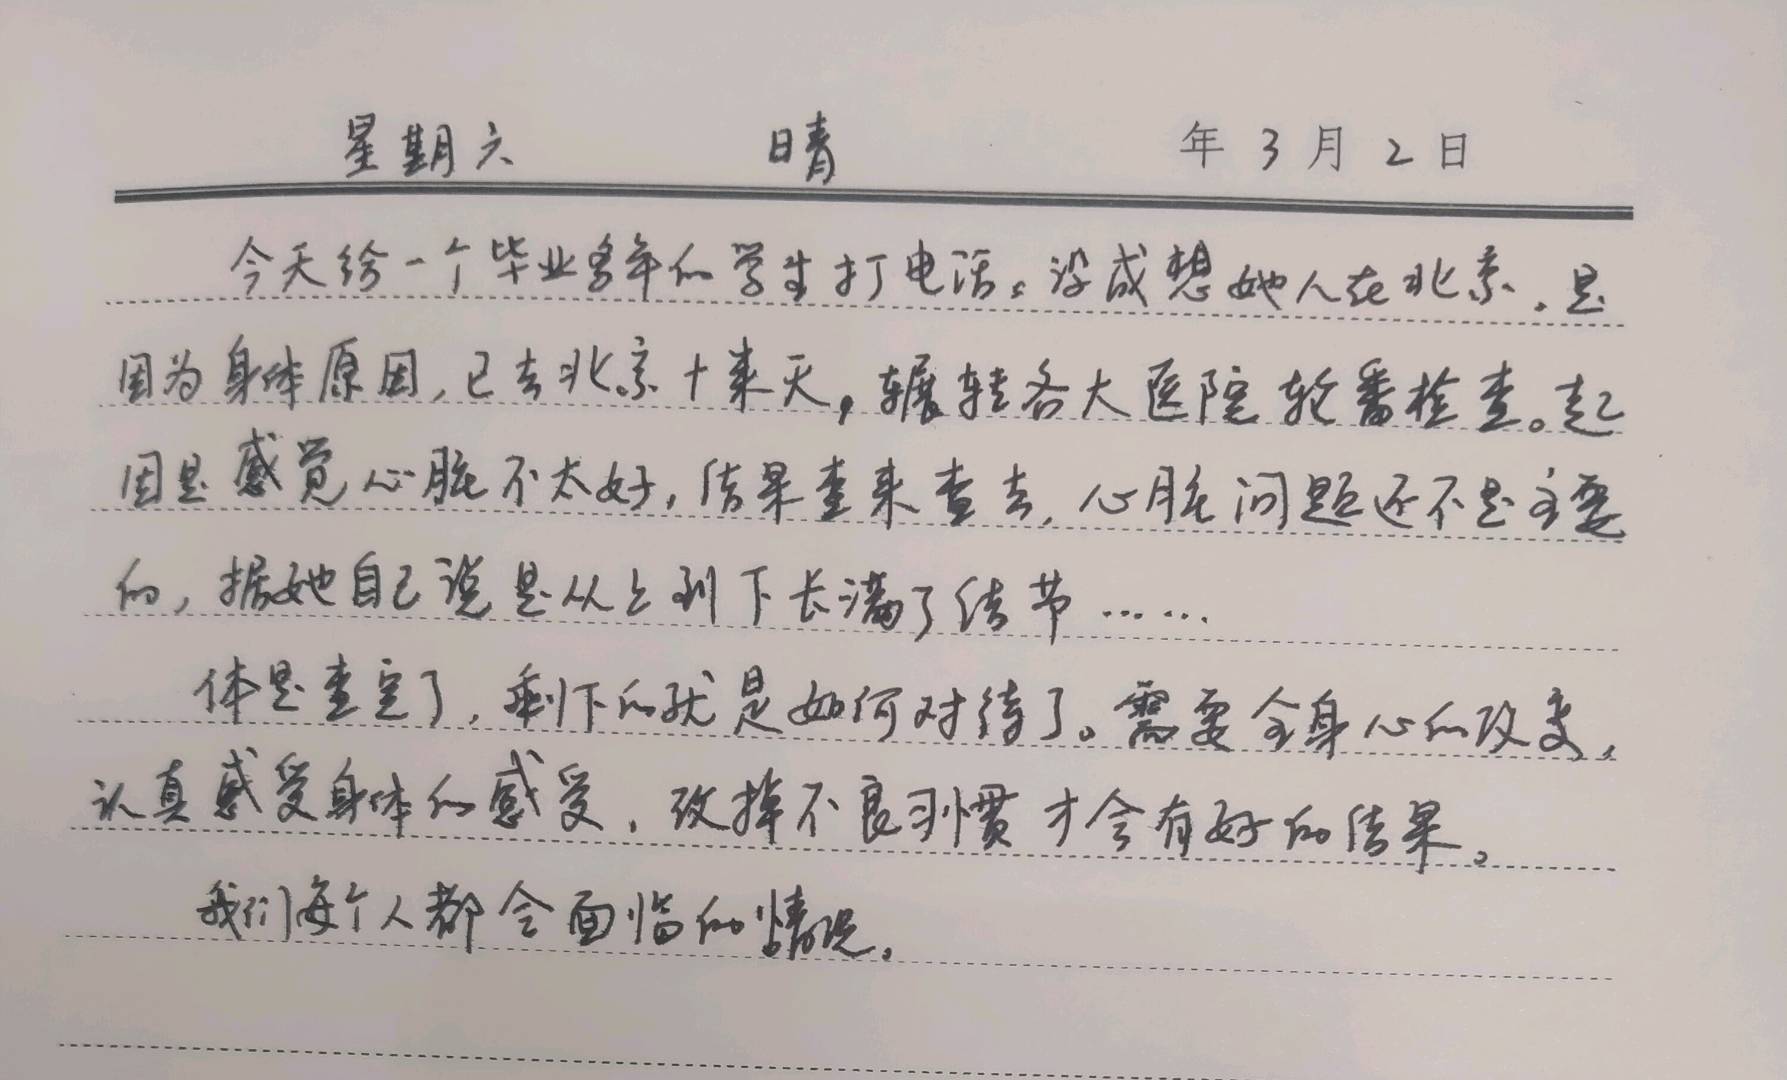 星期六 晴 年3月2日
今天给一个毕业多年的学生打电话。没成想她人在北京。是
因为身体原因,已去北京十来天,辗转各大医院轮番检查。起
因是感觉心脏不太好,结果查来查去,心脏问题还不是主要
的,据她自己说是从上到下长满了结节……
体是查完了,剩下的就是如何对待了。需要全身心的改变,
认真感受身体的感受,改掉不良习惯才会有好的结果。
我们每个人都会面临的情况。